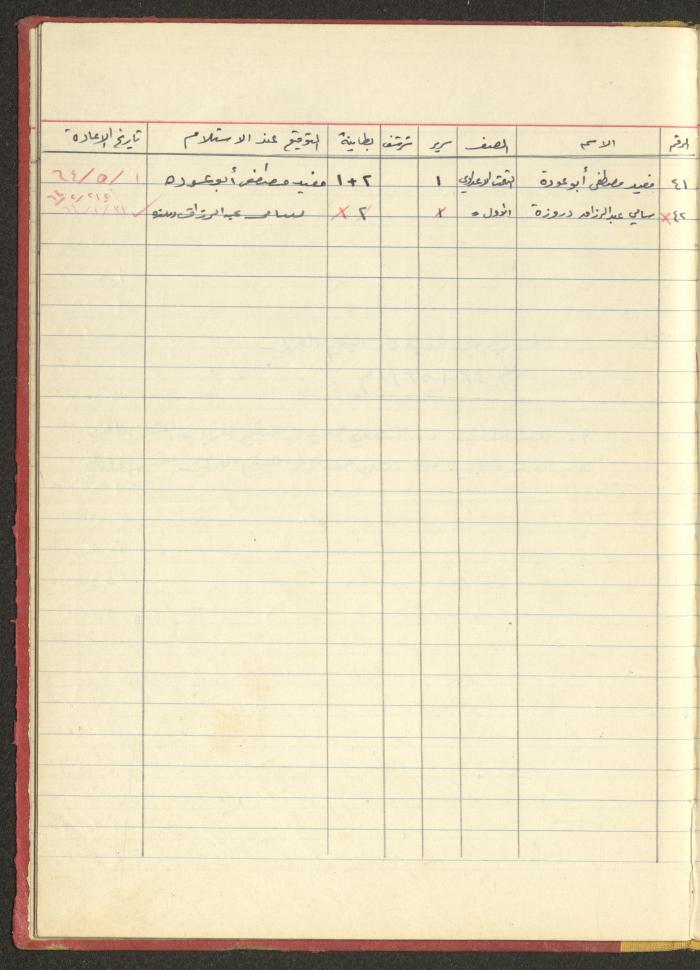 الرقم الاسم الصنف سرير شرشف بطانية التوقيع عند الاستلام تاريخ الاعادة
٤١ مفيد مصطفى أبو عودة ١ ٢+١ مفيد مصطفى أبو عوده ١/٥/٦٤
٤٢ سامي عبد الرزاق دروزة الاول ١ ٢ سامي عبد الرزاق دروزه